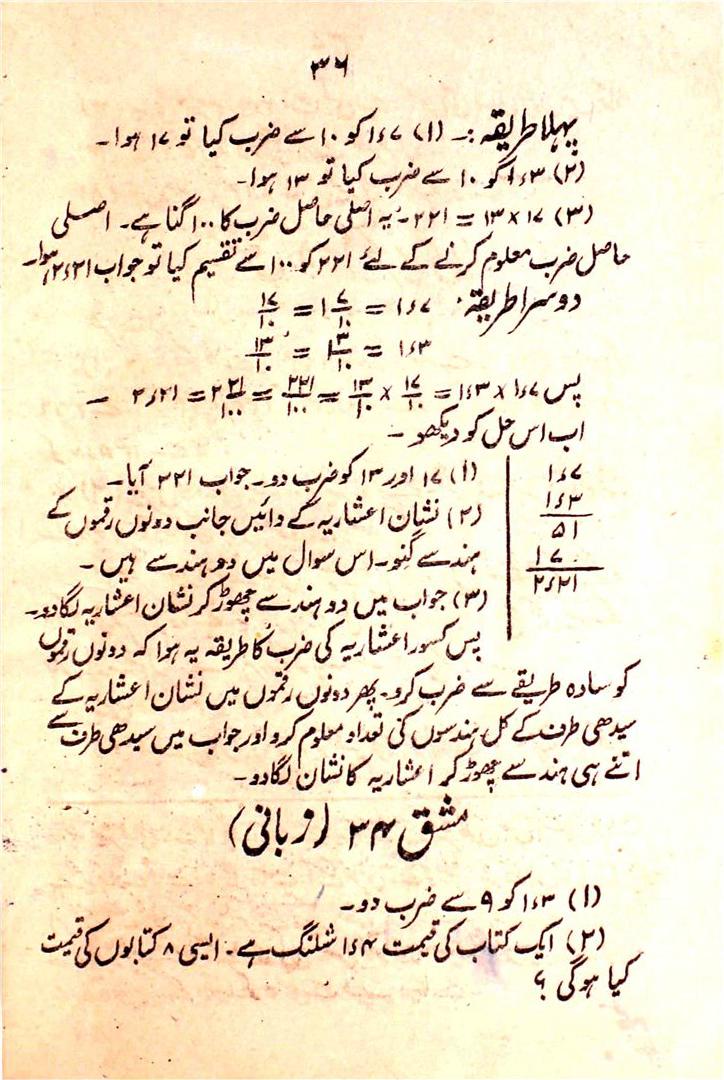 ۳۶
پہلا طریقہ :۔ (۱) ۱ء۷ کو ۱۰ سے ضرب کیا تو ۱۷ ہوا۔
(۲) ۱ء۳ کو ۱۰ سے ضرب کیا تو ۱۳ ہوا۔
(۳) ۱۷ × ۱۳ = ۲۲۱۔ یہ اصلی حاصل ضرب کا ۱۰۰ گنا ہے۔ اصلی
حاصل ضرب معلوم کرنے کے لئے ۲۲۱ کو ۱۰۰ سے تقسیم کیا تو جواب ۲ء۲۱ ہوا۔
دوسرا طریقہ۔ ۱ء۷ = ۱ ۷/۱۰ = ۱۷/۱۰
۱ء۳ = ۱ ۳/۱۰ = ۱۳/۱۰
پس ۱ء۷ × ۱ء۳ = ۱۷/۱۰ × ۱۳/۱۰ = ۲۲۱/۱۰۰ = ۲ ۲۱/۱۰۰ = ۲ء۲۱ ۔
اب اس حل کو دیکھو ۔
۱ء۷
۱ء۳
۵۱
۱۷۰
۲ء۲۱
(۱) ۱۷ اور ۱۳ کو ضرب دو۔ جواب ۲۲۱ آیا۔
(۲) نشان اعشاریہ کے دائیں جانب دونوں رقموں کے
ہندسے گنو۔ اس سوال میں دو ہندسے ہیں ۔
(۳) جواب میں دو ہندسے چھوڑ کر نشان اعشاریہ لگا دو۔
پس کسور اعشاریہ کی ضرب کا طریقہ یہ ہوا کہ دونوں رقموں
کو سادہ طریقے سے ضرب کرو۔ پھر دونوں رقموں میں نشان اعشاریہ کے
سیدھی طرف کے کل ہندسوں کی تعداد معلوم کرو اور جواب میں سیدھی طرف سے
اتنے ہی ہندسے چھوڑ کر اعشاریہ کا نشان لگا دو۔
مشق ۳۴ (زبانی)
(۱) ۱ء۳ کو ۹ سے ضرب دو۔
(۲) ایک کتاب کی قیمت ۱ء۴ شلنگ ہے۔ ایسی ۸ کتابوں کی قیمت
کیا ہوگی ؟